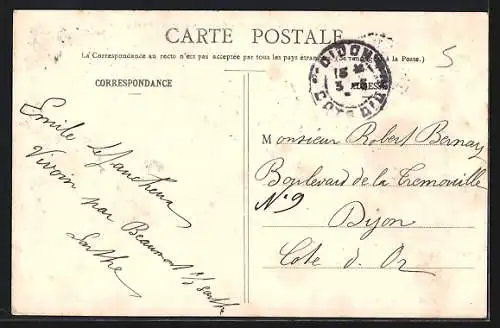 CARTE POSTALE
La Correspondance au recto n'est pas acceptée par tous les pays étrangers (Se renseigner à la Poste.)
CORRESPONDANCE
ADRESSE
DIJON
15
3
COTE D'OR
5
Emile
Vivoin par Beaumont s/ Sarthe
Sarthe
Monsieur Robert Bernay
Boulevard de la Tremouille
N° 9
Dijon
Cote d'Or